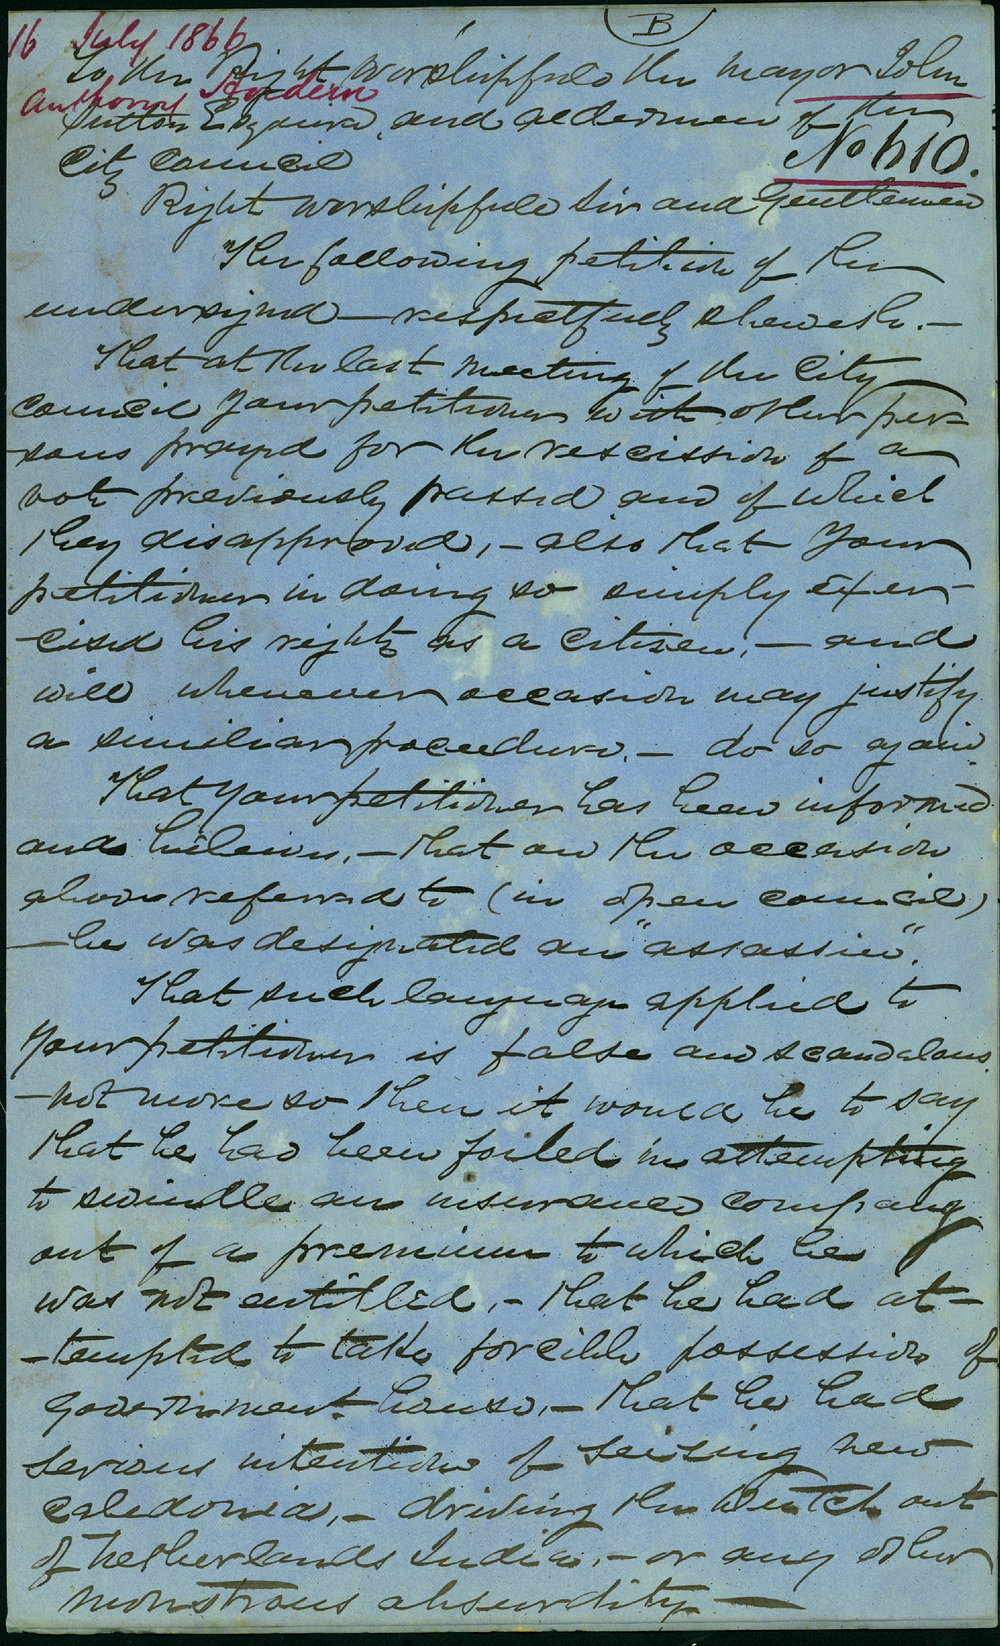 B
16 July 1866
To the Right Worshipfull the Mayor John
Anthony Hordern
Sutton Esquire, and aldermen of the
City Council
No 610.
Right Worshipfull Sir and Gentlemen
The following petition of the
undersigned – respectfully sheweth. –
That at the last meeting of the City
Council Your petitioner with other per-
-sons prayed for the rescission of a
vote previously passed and of which
they disapproved, – also that Your
petitioner in doing so simply exer-
-cised his rights as a citizen, – and
will whenever occasion may justify
a similiar procedure. – do so again.
That Your petitioner has been informed
and believes, – that on the occasion
above referred to (in open council)
– he was designated an "assassin".
That such language applied to
Your petitioner is false and scandalous
– not more so then it would be to say
that he had been foiled in attempting
to swindle an insurance company
out of a premium to which he
was not entitled, – that he had at-
-tempted to take forcible possession of
Government house, – that he had
serious intentions of seising New
Caledonia, – driving the Dutch out
of Netherlands India, – or any other
monstrous absurdity –